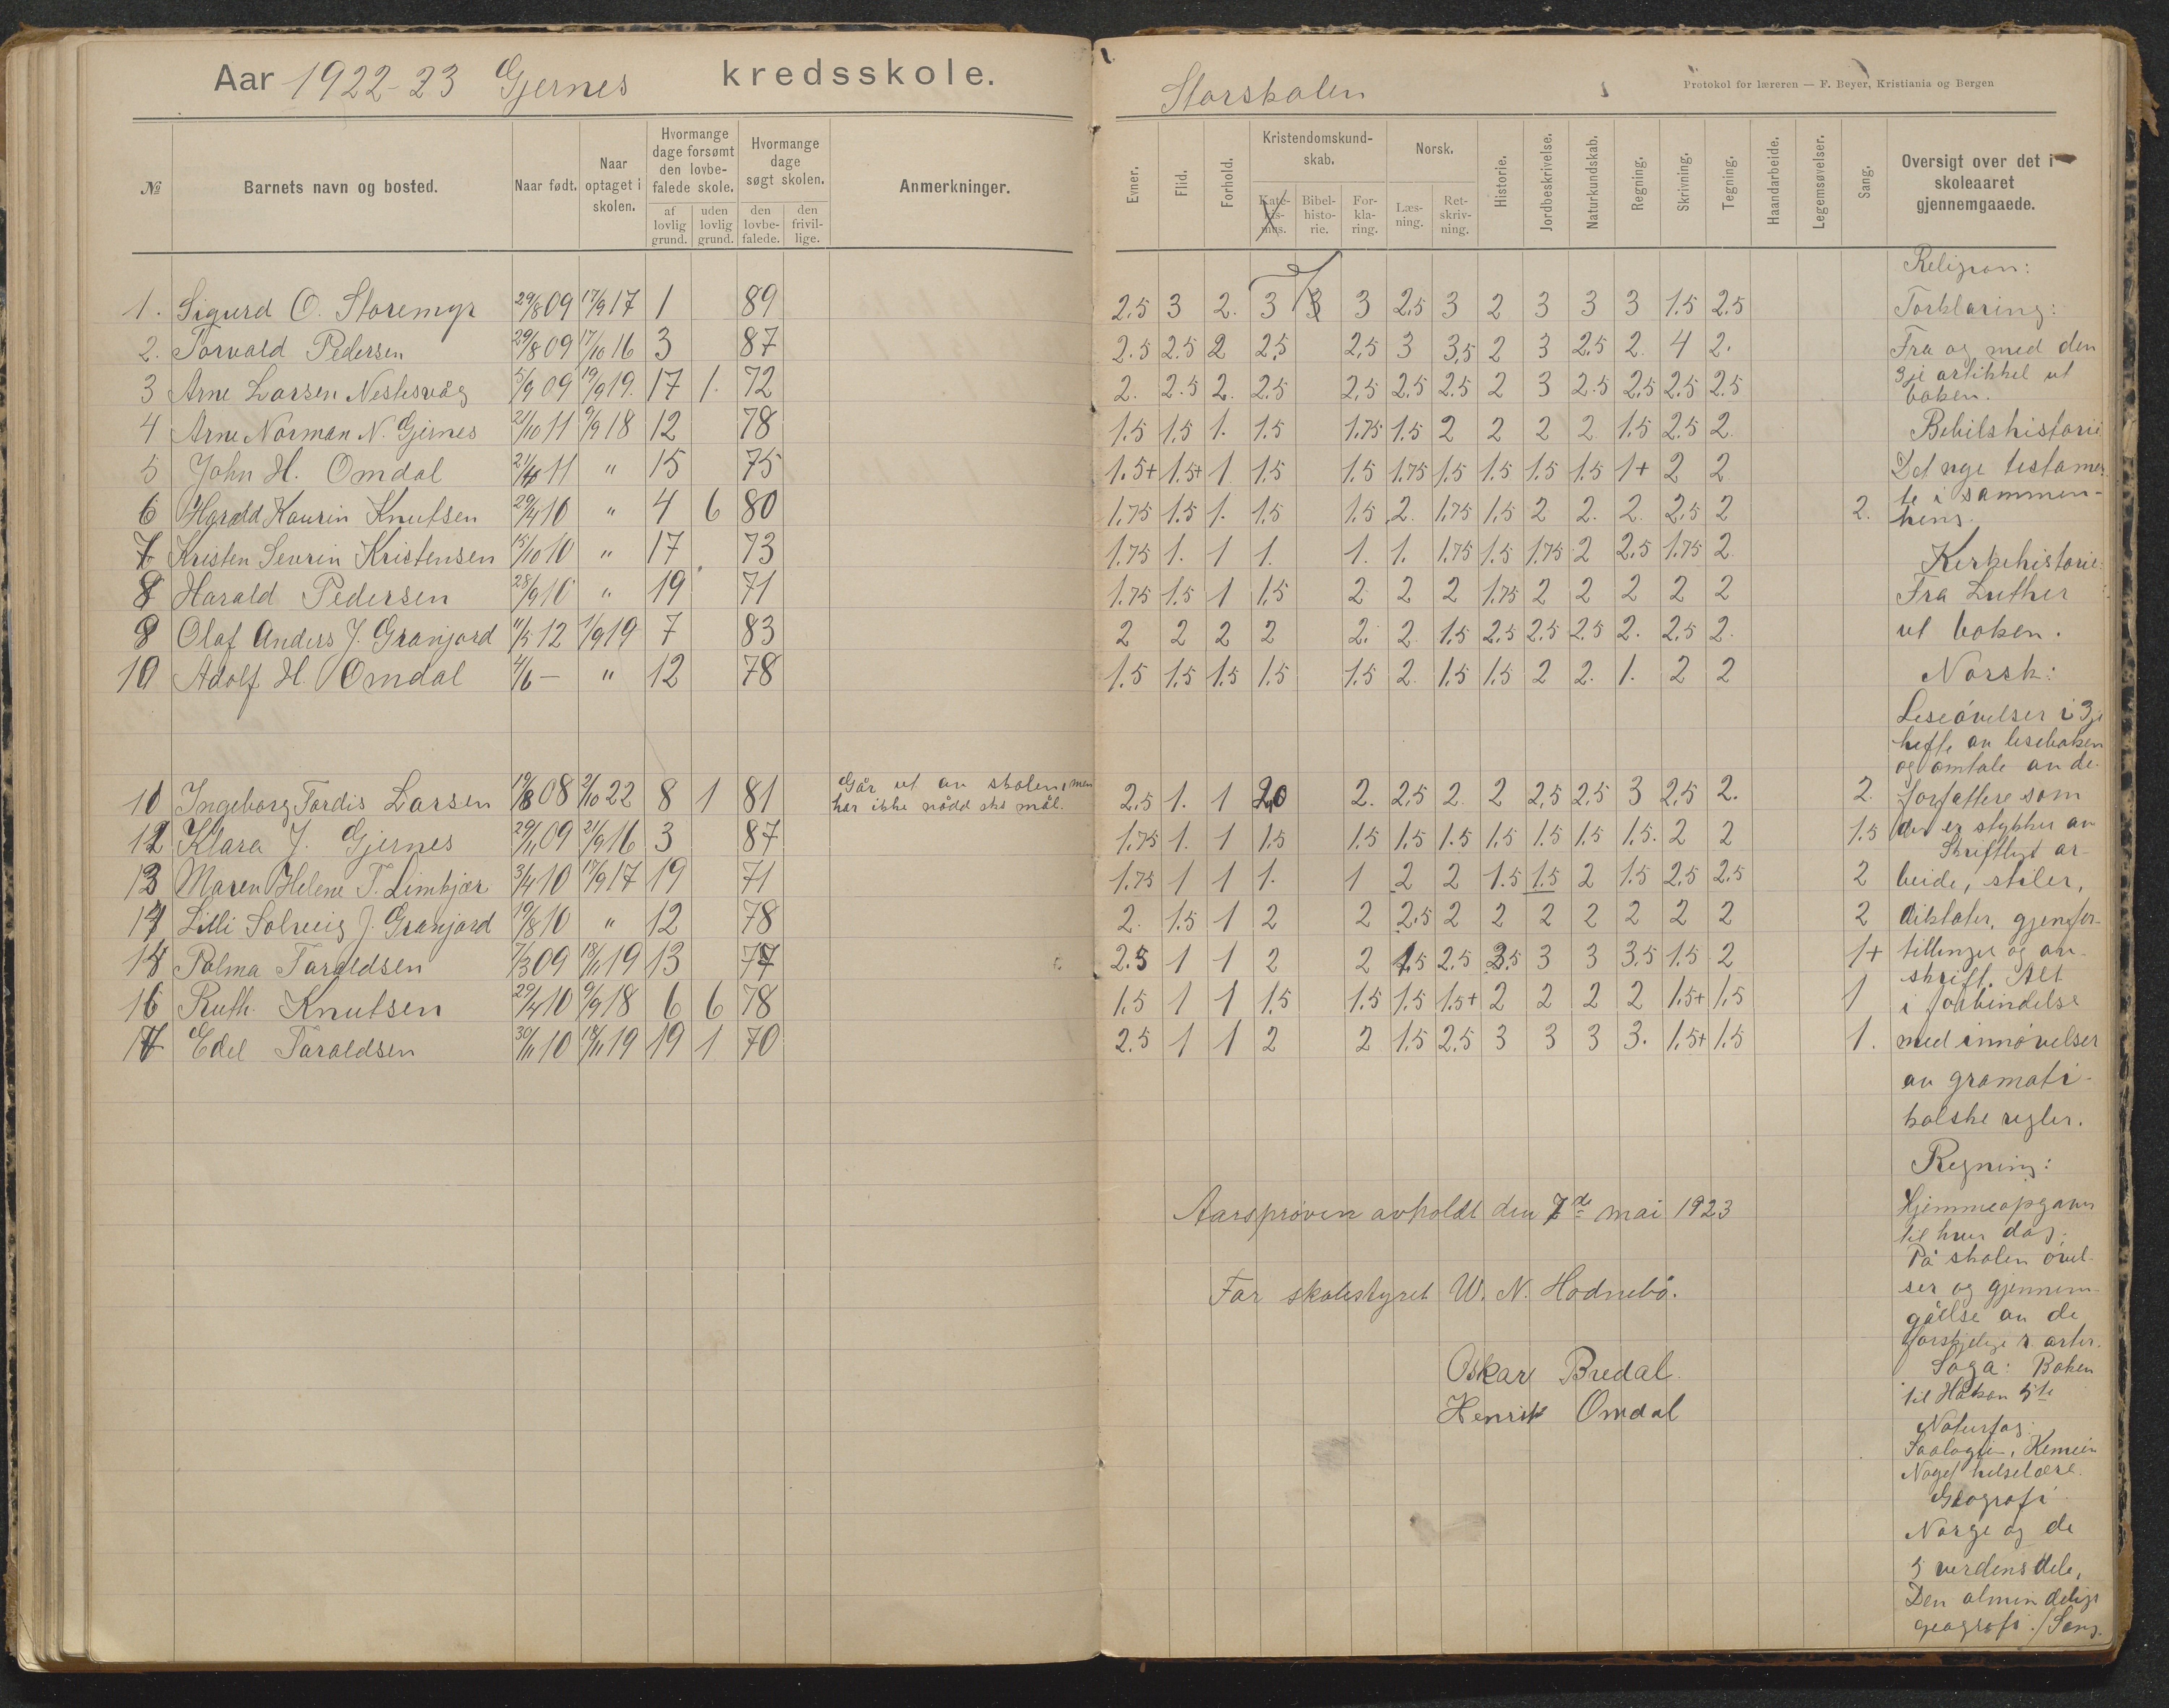 Aar 1922-23 Gjernes kredsskole.
Storskolen
Protokol for læreren — F. Beyer, Kristiania og Bergen
№ Barnets navn og bosted. Naar født. Naar optaget i skolen. Hvormange dage forsømt den lovbefalede skole. af lovlig grund. uden lovlig grund. Hvormange dage søgt skolen. den lovbefalede. den frivillige. Anmerkninger.
Evner. Flid. Forhold. Kristendomskundskab. Katekismus. Bibelhistorie. Forklaring. Norsk. Læsning. Retskrivning. Historie. Jordbeskrivelse. Naturkundskab. Regning. Skrivning. Tegning. Haandarbeide. Legemsøvelser. Sang. Oversigt over det i skoleaaret gjennemgaaede.
1. Sigurd O. Storemyr 29/8 09 17/9 17 1 89 2.5 3 2. 3 3 3 2,5 3 2 3 3 3 1.5 2.5
2. Torvald Pedersen 29/8 09 17/10 16 3 87 2.5 2.5 2 2,5 2,5 3 3,5 2 3 2,5 2. 4 2.
3 Arne Larsen Nestesvåg 5/9 09 19/9 19. 17 1. 72 2. 2.5 2. 2.5 2,5 2,5 2.5 2 3 2.5 2,5 2.5 2.5
4 Arne Norman N. Gjernes 21/10 11 9/9 18 12 78 1.5 1.5 1. 1.5 1.75 1.5 2 2 2 2 1.5 2.5 2
5 John H. Omdal 11 " 15 75 1.5+ 1.5+ 1 1.5 1.5 1.75 1.5 1.5 1.5 1.5 1+ 2 2
6 Harald Kaurin Knutsen 29/4 10 " 4 6 80 1,75 1.5 1. 1.5 1.5 2. 1,75 1,5 2 2. 2. 2,5 2 2.
7 Kristen Severin Kristensen 15/10 10 " 17 73 1.75 1. 1 1. 1. 1. 1.75 1.5 1.75 2 2,5 1.75 2
8 Harald Pedersen 28/9 10 " 19 71 1.75 1.5 1 1,5 2 2 2 1.75 2 2 2 2 2
9 Olaf Anders J. Granjord 11/5 12 1/9 19 7 83 2 2 2 2 2. 2 1.5 2.5 2.5 2.5 2. 2,5 2.
10 Adolf H. Omdal 4/6 — " 12 78 1.5 1.5 1.5 1.5 1.5 2. 1.5 1.5 2 2. 1. 2 2
11 Ingeborg Tordis Larsen 19/8 08 2/10 22 8 1 81 Går ut av skolen, men
har ikke nådd sks mål. 2.5 1. 1 2,0 2. 2,5 2 2 2,5 2,5 3 2,5 2. 2.
12 Klara J. Gjernes 29/11 09 21/9 16 3 87 1.75 1. 1 1.5 1.5 1.5 1.5 1,5 1.5 1.5 1.5. 2 2 1.5
13 Maren Helene T. Limkjær 3/4 10 17/9 17 19 71 1.75 1 1 1. 1 2 2 1.5 1.5 2 1.5 2.5 2.5 2
14 Lilli Solveig J. Granjord 19/8 10 " 12 78 2. 1.5 1 2 2 2.5 2 2 2 2 2 2 2 2
15 Palma Taraldsen 7/3 09 18/11 19 13 77 2.5 1 1 2 2 1.5 2.5 3.5 3 3 3.5 1.5 2 1+
16 Ruth Knutsen 29/4 10 9/9 18 6 6 78 1,5 1 1 1.5 1.5 1.5 1.5+ 2 2 2 2 1.5+ 1,5 1
17 Edel Taraldsen 30/11 10 18/11 19 19 1 70 2.5 1 1 2 2 1.5 2.5 3 3 3 3. 1.5+ 1.5 1.
Aarsprøven avholdt den 7de mai 1923
For skolestyret W. N. Hodnebø.
Oskar Bredal.
Henrik Omdal
Religion:
Forklaring:
Fra og med den
3je artikkel ut
boken.
Bebilshistorie
Det nye testamen-
te i sammen-
heng.
Kirkehistorie:
Fra Luther
ut boken.
Norsk:
Leseøvelser i 3je
hefte av leseboken
og omtale av de
forfattere som
der er stykker av
Skriftligt ar-
beide, stiler,
diktater, gjenfor-
tellinger og av-
skrift. Alt
i forbindelse
med innøvelser
av gramati-
kalske regler.
Regning:
Hjemmeopgaver
til hver dag.
På skolen øvel-
ser og gjennem-
gåelse av de
forskjelige r. arter.
Soga: Boken
til Håkon 5te
Naturfag:
Soologien, Kemien
Noget helselære.
Geografi
Norge og de
5 verdensdele,
Den almindelige
geografi. / Sang.